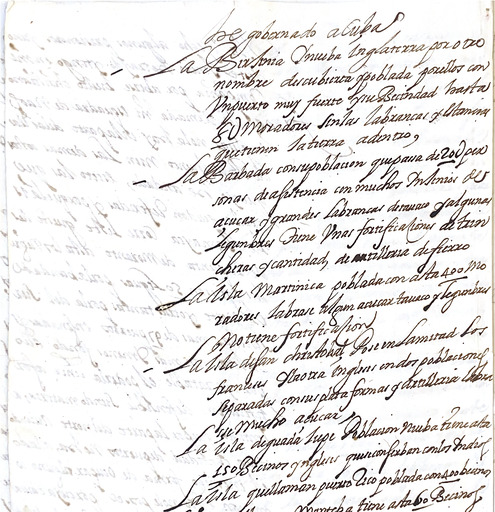 he gobernado a Cuba
La Birginia o nueba Inglaterra por otro
nombre descubierta y poblada por ellos con
Un puerto muy fuerte y su Becindad hasta
moradores sin las labrancas y Estancias
que tienen la tierra adentro,
La Barbada con su poblacion que pasa de 200 per
sonas de asistencia con muchos Inxenios de
açucar y grandes labrancas de tavaco y algunas
legumbres tiene Unas fortificaçiones de trin
cheras y cantidad, de artilleria de fierro
La isla Martinica poblada con asta 400 mo
radores labrase algun açucar tavaco y legumbres
no tiene fortificaçion
La isla de san christobal Poseen la mitad los
franceses y la otra Ingleses en dos poblaciones
separadas con sus plataformas y artilleria labra
se mucho açucar
La isla de guada lupe Poblacion nueba tiene asta
150 Becinos yngleses que confinan con los Indios
La isla que llaman puerto Rico poblada con 400 becinos
tiene asta 60 Becinos